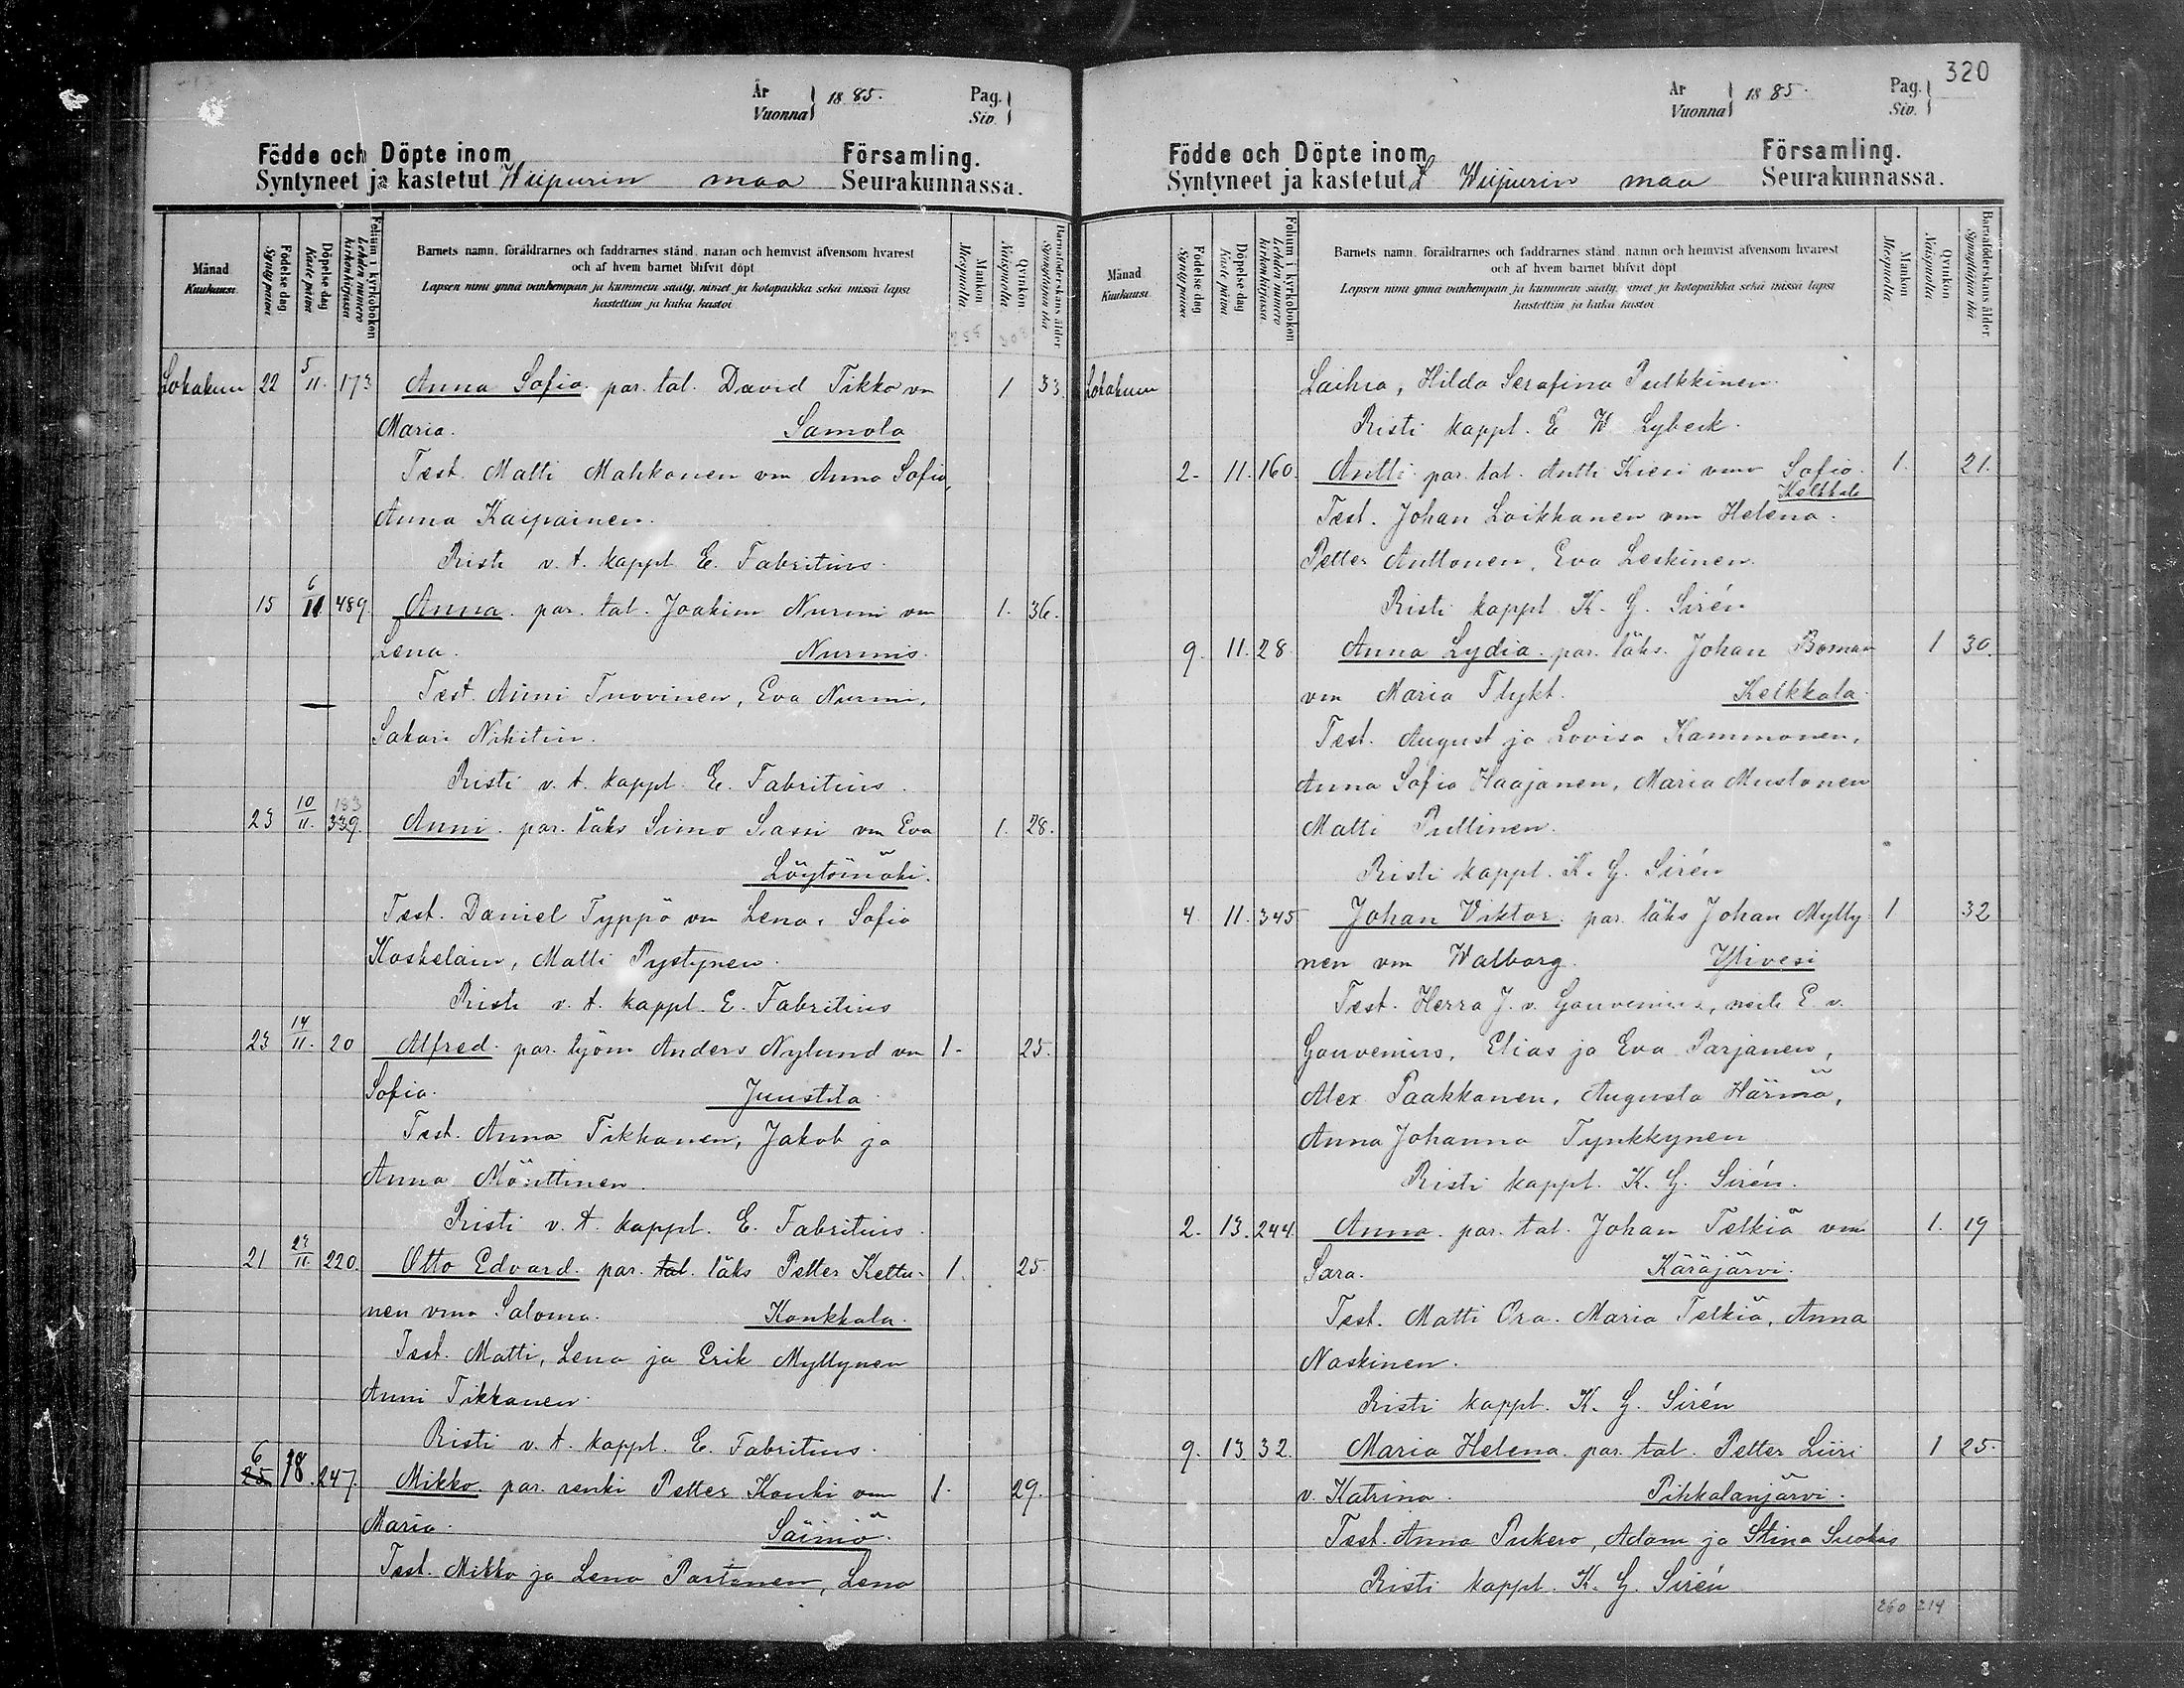 År
Vuonna
1885.
Pag.
Siv.
Födde och Döpte inom
Församling.
Syntyneet ja kastetut Wiipurin maa Seurakunnassa.
Månad
Kuukausi
Födelse dag
Syntypäivä
Döpelse dag
Kaste päivä
Folium i kyrkoboken
Lehden numero
kirkonkirjassa
Barnets namn, föräldrarnes och faddrarnes stånd, namn och hemvist äfvensom hvarest
och af hvem barnet blifvit döpt
Lapsen nimi ynnä vanhempain ja kummein sääty, nimet ja kotopaikka sekä missä lapsi
kastettiin ja kuka kastoi
Mankön
Miespuolia
Qvinkön
Naispuolia
Barnaföderskans ålder
Synnyttäjän ikä
Lokakuu 22 5/11. 173 Anna Sofia. par. tal. David Tikka vm 1 33.
Maria. Samola
Test. Matti Mahkonen vm Anna Sofia,
Anna Kaipainen.
Risti v. t. kappl. E. Fabritius.
15 6/11 489. Anna. par. tal. Joakim Nurmi vm 1. 36.
Lena. Nurmis.
Test. Anni Tuovinen, Eva Nurmi,
Sakari Nikitin.
Risti v. t. kappl. E. Fabritius.
23 10/11. 183 339. Anni. par. läks Simo Sassi vm Eva 1. 28.
Löytömäki.
Test. Daniel Typpö vm Lena, Sofia
Koskelain, Matti Pystynen.
Risti v. t. kappl. E. Fabritius
23 14/11. 20 Alfred. par. työm Anders Nylund vm 1. 25.
Sofia. Juustila
Test. Anna Tikkanen, Jakob ja
Anna Mönttinen.
Risti v. t. kappl. E. Fabritius.
21 24/11. 220. Otto Edvard. par. tal. läks Petter Kettu- 1. 25.
nen vmo Saloma. Konkkala.
Test. Matti, Lena ja Erik Myllynen
Anni Tikkanen.
Risti v. t. kappl. E. Fabritius.
6 25 18. 247. Mikko. par. renki Petter Kouki vm 1. 29.
Maria. Säiniö.
Test. Mikko ja Lena Partanen, Lena
320
År
Vuonna
1885.
Pag.
Siv.
Födde och Döpte inom
Församling.
Syntyneet ja kastetut Wiipurin maa Seurakunnassa.
Månad
Kuukausi
Födelse dag
Syntypäivä
Döpelse dag
Kaste päivä
Folium i kyrkoboken
Lehden numero
kirkonkirjassa
Barnets namn, föräldrarnes och faddrarnes stånd, namn och hemvist äfvensom hvarest
och af hvem barnet blifvit döpt
Lapsen nimi ynnä vanhempain ja kummein sääty, nimet ja kotopaikka sekä missä lapsi
kastettiin ja kuka kastoi
Mankön
Miespuolia
Qvinkön
Naispuolia
Barnaföderskans ålder
Synnyttäjän ikä
Lokakuu Laihia, Hilda Serafina Pulkkinen.
Risti kappl. E W Lybeck.
2. 11. 160. Antti. par. tal. Antti Kiesi vmo Sofia. 1. 21.
Kelkkala
Test. Johan Loikkanen vm Helena.
Petter Anttonen, Eva Leskinen.
Risti kappl K. G. Sirén
9. 11. 28 Anna Lydia. par. läks. Johan Boman 1 30.
vm Maria Flykt. Kelkkala.
Test. August ja Lovisa Kammonen,
Anna Sofia Haajanen, Maria Mustonen
Matti Pullinen.
Risti kappl. K. G. Sirén
4. 11. 345 Johan Viktor. par. läks Johan Mylly 1 32
nen vm Walborg. Ylivesi
Test. Herra J. v. Gouvenius, neiti E. v.
Gouvenius, Elias ja Eva Parjanen,
Alex Paakkanen, Augusta Härmä,
Anna Johanna Tynkkynen
Risti kappl. K. G. Sirén.
2. 13. 244. Anna. par. tal. Johan Telkiä vm 1. 19
Sara. Käräjärvi.
Test. Matti Ora. Maria Telkiä, Anna
Naskinen.
Risti kappl. K. G. Sirén
9. 13 32. Maria Helena. par. tal. Petter Liiri 1 25.
v. Katrina. Pihkalanjärvi.
Test. Anna Pukero, Adam ja Stina Suokas
Risti kappl. K. G. Sirén
260 214